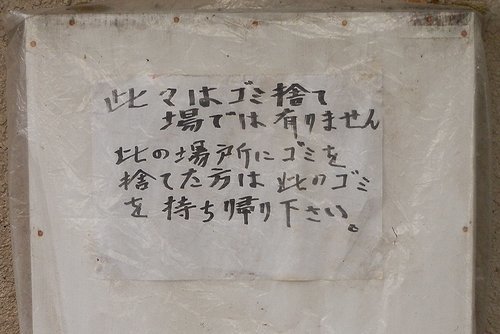 此々はゴミ捨て
場では有りません
此の場所にゴミを
捨てた方は此のゴミ
を持ち帰り下さい。